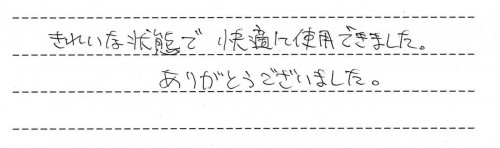 きれいな状態で 快適に使用できました。
ありがとうございました。